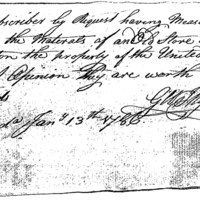 scriber by Request having Meas
the Materials of an Old Store
on the property of the United
Opinion they are worth
Jany 13th 1786